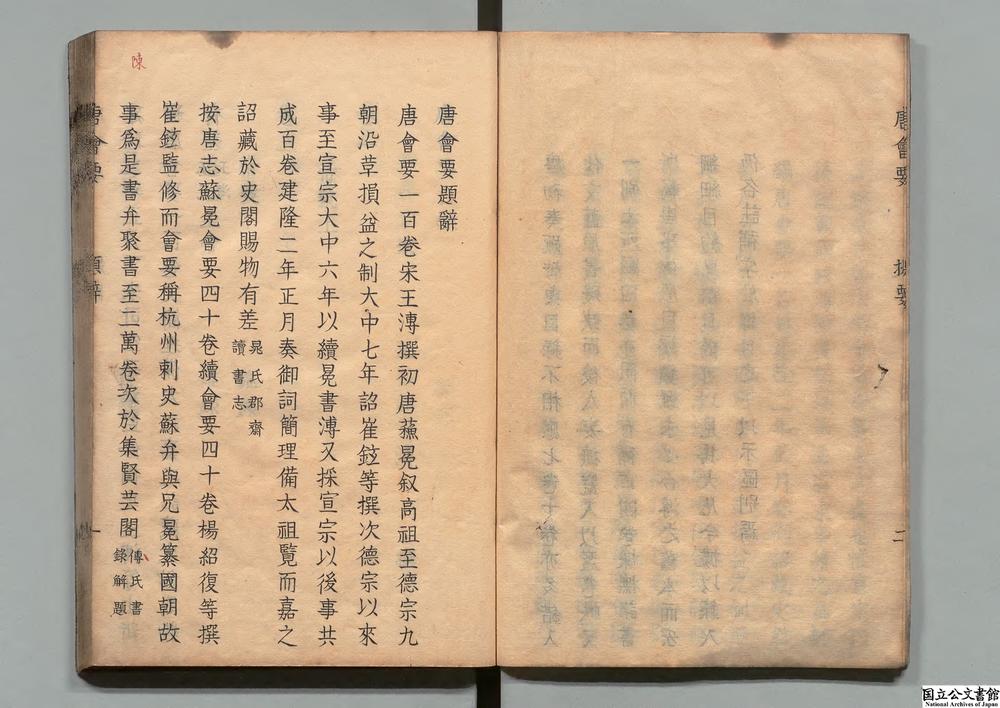 唐會要題辭
唐會要一百卷宋王溥撰初唐蘇冕叙高祖至德宗九
朝沿草損益之制大中七年詔崔鉉等撰次德宗以來
事至宣宗大中六年以續冕書溥又採宣宗以後事共
成百卷建隆二年正月奏御詞簡理備太祖覽而嘉之
詔藏於史閣賜物有差晁氏郡齋讀書志
按唐志蘇冕會要四十卷續會要四十卷楊紹復等撰
崔鉉監修而會要稱杭州刺史蘇弁與兄冕纂國朝故
事爲是書弁聚書至二萬卷次於集賢芸閣傳氏書錄解題
陳
唐會要 題辭 一
唐會要 提要 二
国立公文書館
National Archives of Japan